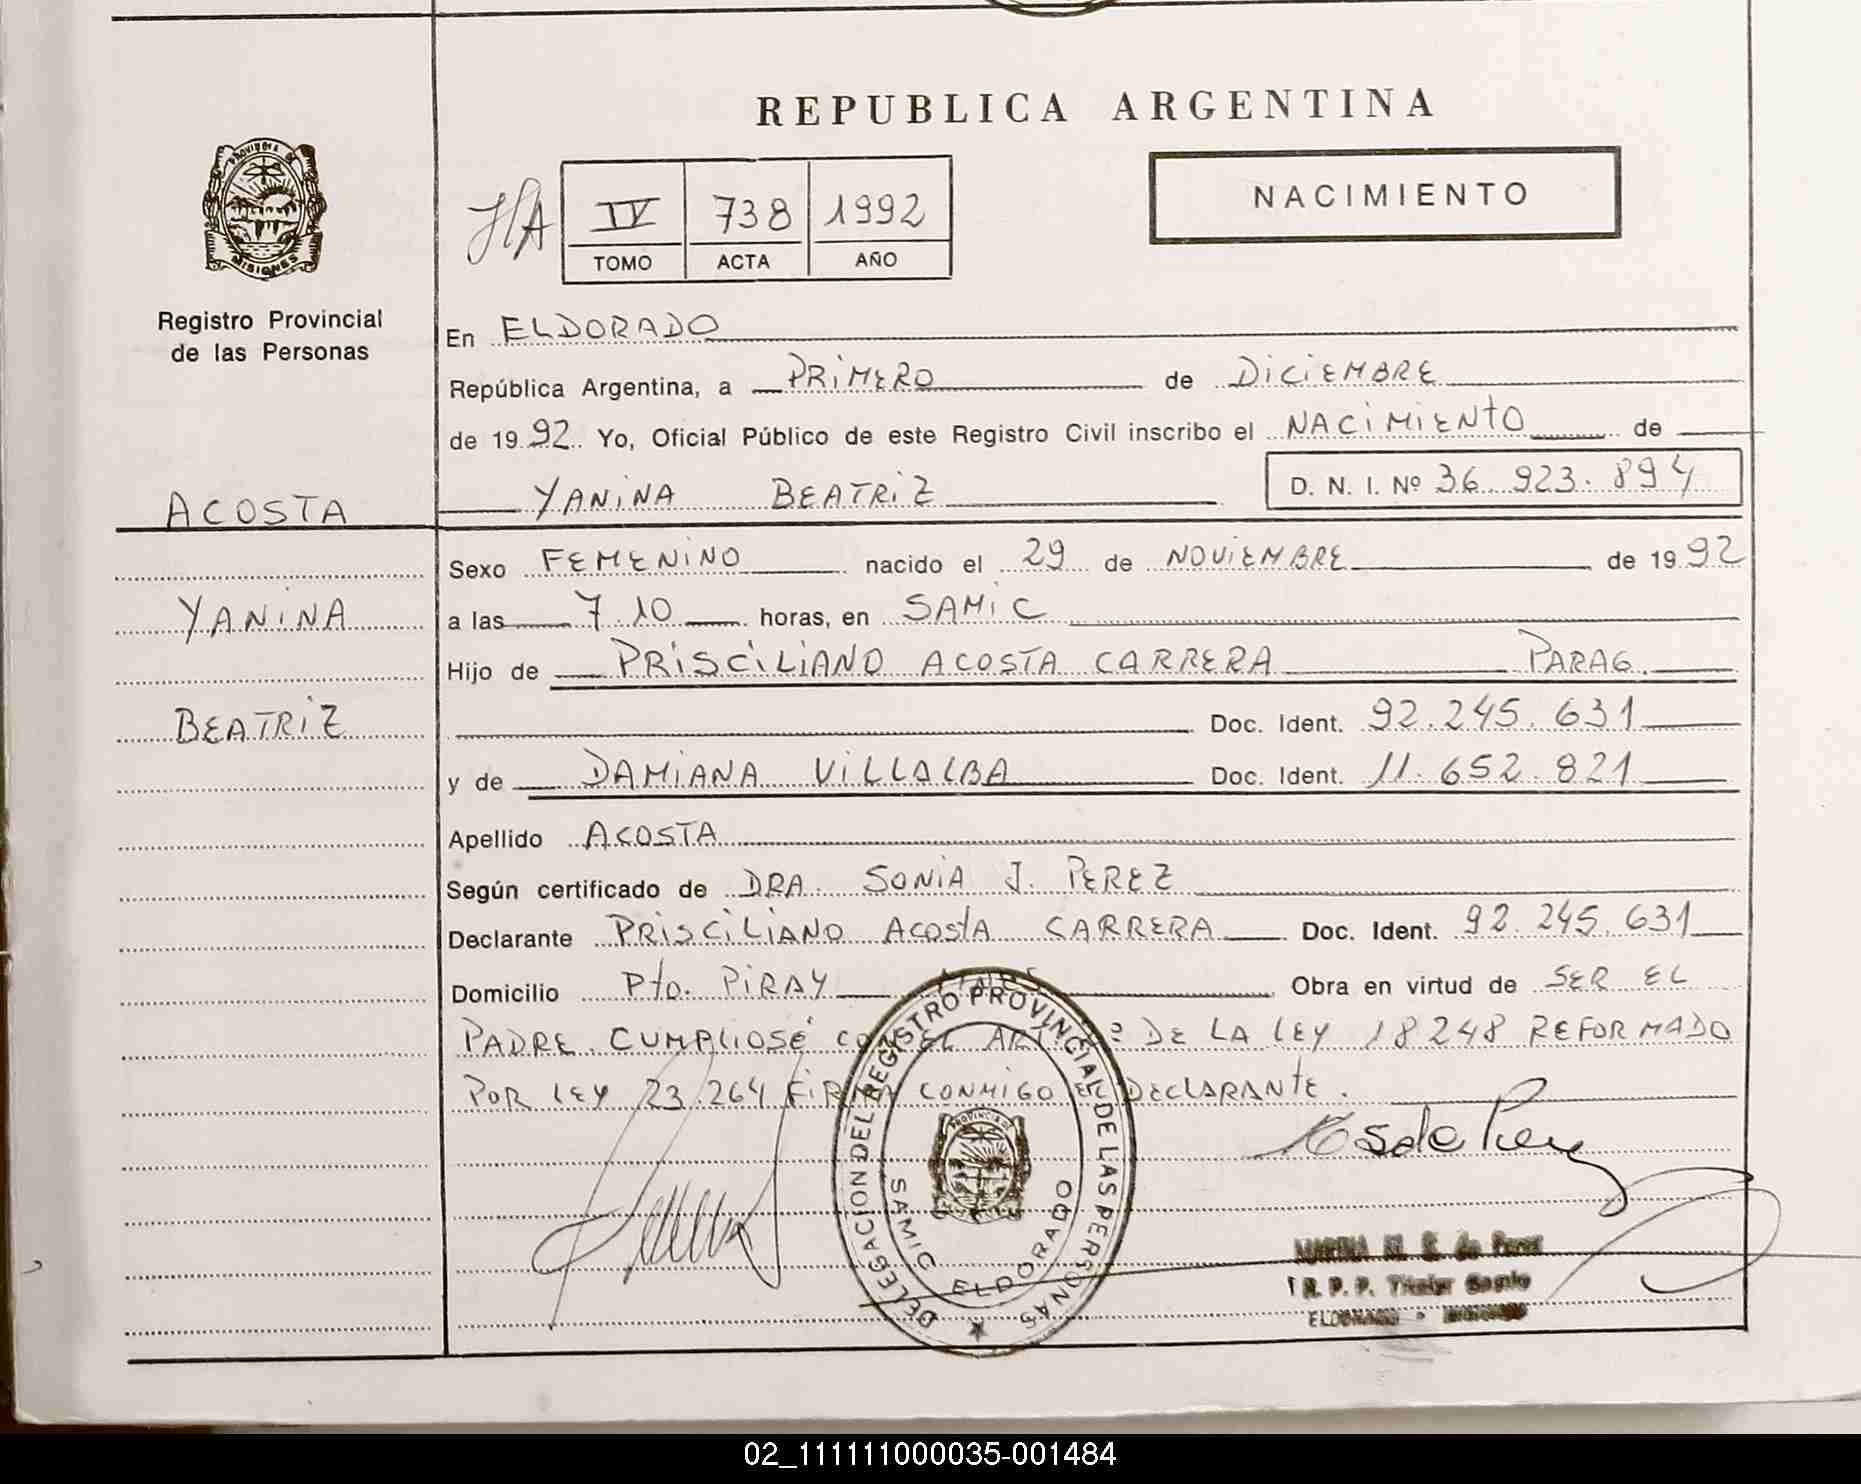 REPUBLICA ARGENTINA
NACIMIENTO
IV 738 1992
TOMO ACTA AÑO
PROVINCIA DE
MISIONES
Registro Provincial
de las Personas
ACOSTA
YANINA
BEATRIZ
En ELDORADO
República Argentina, a PRIMERO de DICIEMBRE
de 1992. Yo, Oficial Público de este Registro Civil inscribo el NACIMIENTO de
YANINA BEATRIZ D. N. I. Nº 36.923.894
Sexo FEMENINO nacido el 29 de NOVIEMBRE de 1992
a las 7.10 horas, en SAMIC
Hijo de PRISCILIANO ACOSTA CARRERA PARAG.
Doc. Ident. 92.245.631
y de DAMIANA VILLALBA Doc. Ident. 11.652.821
Apellido ACOSTA
Según certificado de DRA. SONIA J. PEREZ
Declarante PRISCILIANO ACOSTA CARRERA Doc. Ident. 92.245.631
Domicilio Pto. PIRAY Obra en virtud de SER EL
PADRE. CUMPLIOSE CON EL ART. DE LA LEY 18248 REFORMADO
POR LEY 23.264 FIRMA CONMIGO EL DECLARANTE.
DELEGACION DEL REGISTRO PROVINCIAL DE LAS PERSONAS
SAMIC ELDORADO
MARINA M. S. de Perez
R. P. P. Titular
ELDORADO - MISIONES
02_111111000035-001484